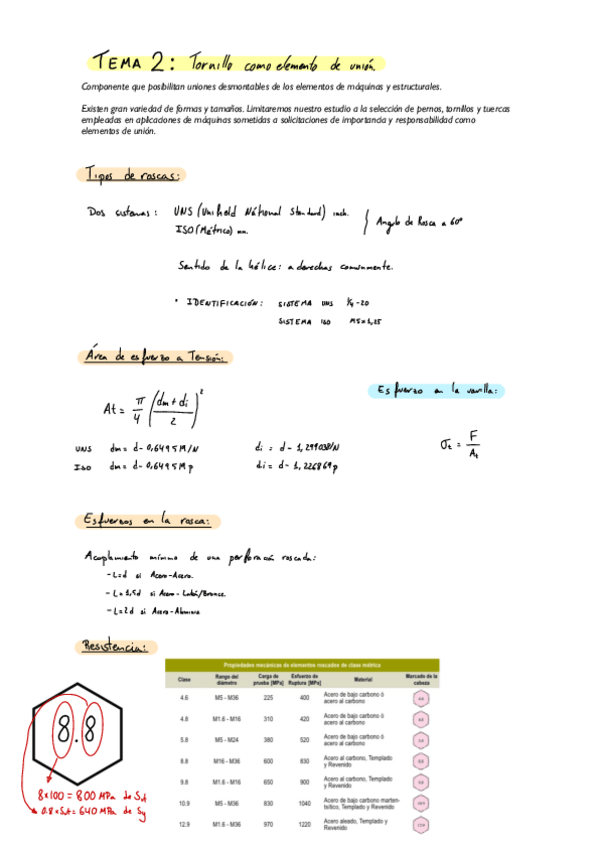 TEMA 2: Tornillo como elemento de unión.
Componente que posibilitan uniones desmontables de los elementos de máquinas y estructurales.
Existen gran variedad de formas y tamaños. Limitaremos nuestro estudio a la selección de pernos, tornillos y tuercas
empleadas en aplicaciones de máquinas sometidas a solicitaciones de importancia y responsabilidad como
elementos de unión.
Tipos de roscas:
Dos sistemas: UNS (Unifield National Standard) inch.
ISO (Métrico) mm.
Angulo de Rosca a 60º
Sentido de la hélice: a derechas comunmente.
• IDENTIFICACIÓN: SISTEMA UNS 1/4-20
SISTEMA ISO M5x1,25
Área de esfuerzo a Tensión:
Esfuerzo en la varilla:
At = π/4 (dm + di / 2)²
σt = F / At
UNS dm = d - 0,649519/N di = d - 1,299038/N
ISO dm = d - 0,649519p di = d - 1,226869p
Esfuerzos en la rosca:
Acoplamiento mínimo de una perforación roscada:
- L=d si Acero-Acero.
- L=1,5d si Acero-Latón/Bronce.
- L=2d si Acero-Aluminio
Resistencia:
Propiedades mecánicas de elementos roscados de clase métrica
Clase Rango del diámetro Carga de prueba [MPa] Esfuerzo de Ruptura [MPa] Material Marcado de la cabeza
4.6 M5 - M36 225 400 Acero de bajo carbono ó acero al carbono 4.6
4.8 M1.6 - M16 310 420 Acero de bajo carbono ó acero al carbono 4.8
5.8 M5 - M24 380 520 Acero de bajo carbono ó acero al carbono 5.8
8.8 M16 - M36 600 830 Acero al carbono, Templado y Revenido 8.8
9.8 M1.6 - M16 650 900 Acero al carbono, Templado y Revenido 9.8
10.9 M5 - M36 830 1040 Acero de bajo carbono martensítico, Templado y Revenido 10.9
12.9 M1.6 - M36 970 1220 Acero aleado, Templado y Revenido 12.9
8.8
8x100 = 800 MPa de Sut
0.8 x Sut = 640 MPa de Sy